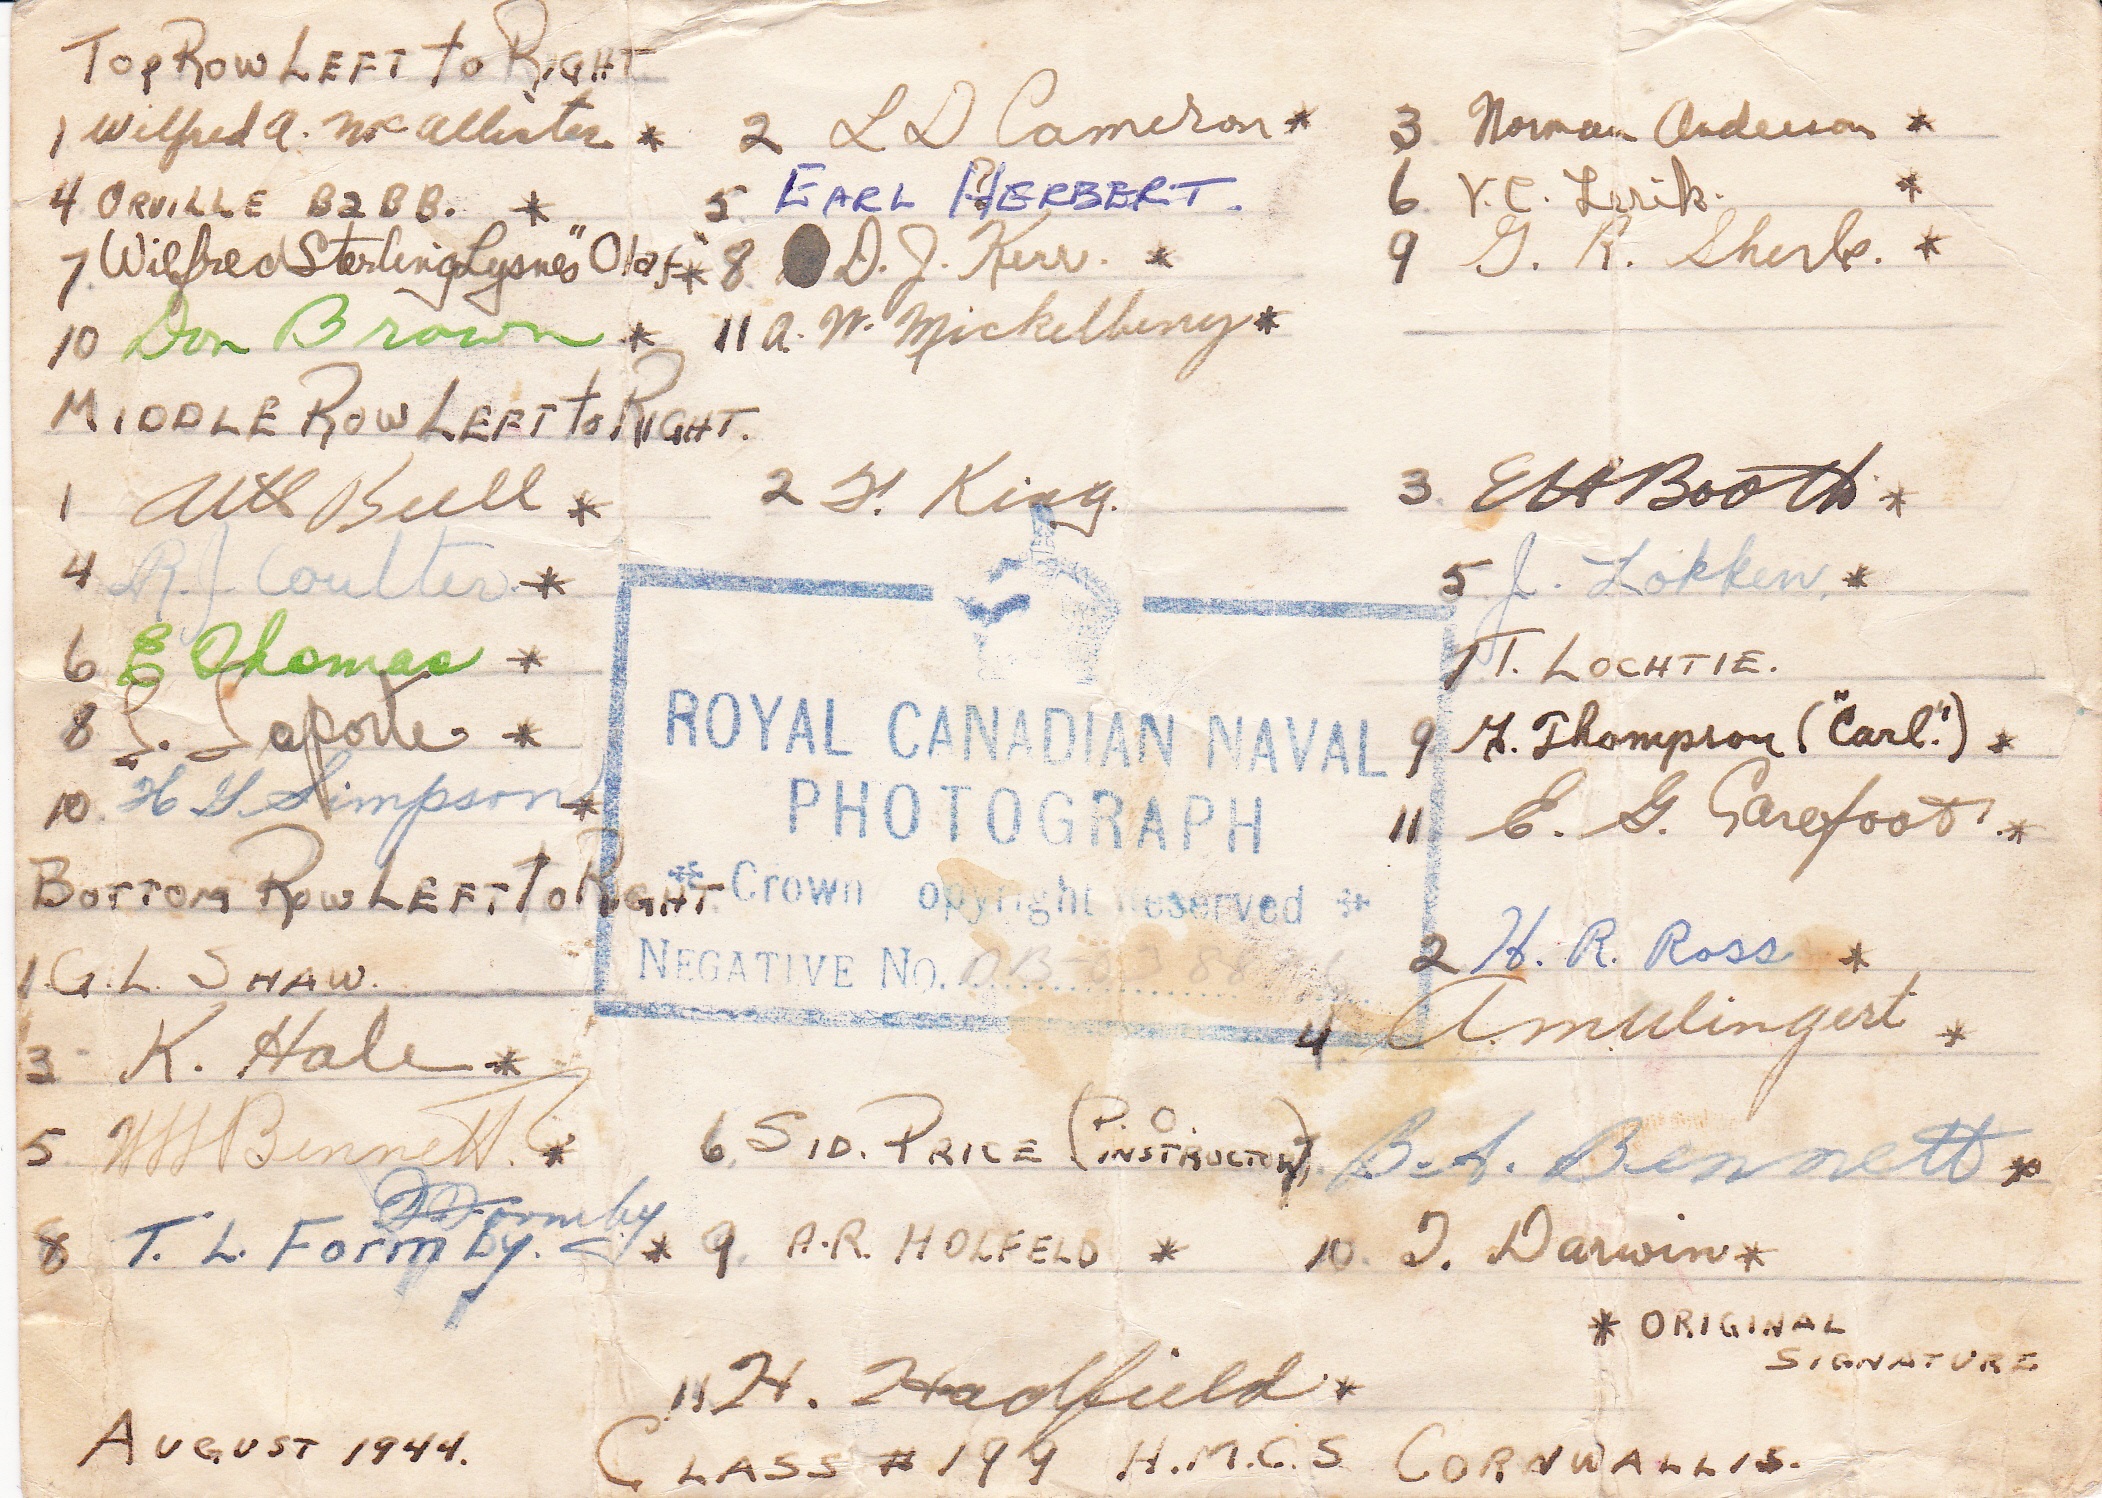 Top Row LEFT to RIGHT
1 Wilfred A. McAllister * 2 L D Cameron * 3 Norman Anderson *
4 ORVILLE BABB. * 5 EARL HERBERT. 6 V.C. *
7. Wilfred Sterling Lysnes "Olaf" * 8 D. J. Kerr. * 9 G. R. *
10 Don Brown * 11 A. W. *
MIDDLE ROW LEFT to RIGHT.
1 Bull * 2 King. 3. EH Booth *
4 R.J Coulter * 5 J. Lokken. *
6 E Thomas * 7 T. LOCHTIE.
8 Laporte * 9 Thompson ("Carl".) *
10. Simpson * 11 E. G. Garefoot. *
ROYAL CANADIAN NAVAL
PHOTOGRAPH
* Crown opyright Reserved *
NEGATIVE No.
BOTTOM ROW LEFT to RIGHT
1 G. L. SHAW. 2 H. R. Ross *
3 K. Hale * 4 *
5 Bennett. * 6. SID. PRICE (P. O. INSTRUCTOR) 7. B. A. Bennett *
Formby
8 T. L. Formby. * 9. A.R. HOLFELD * 10. Darwin *
* ORIGINAL
SIGNATURE
11 H. Hadfield *
AUGUST 1944. CLASS # 199 H.M.C.S CORNWALLIS.